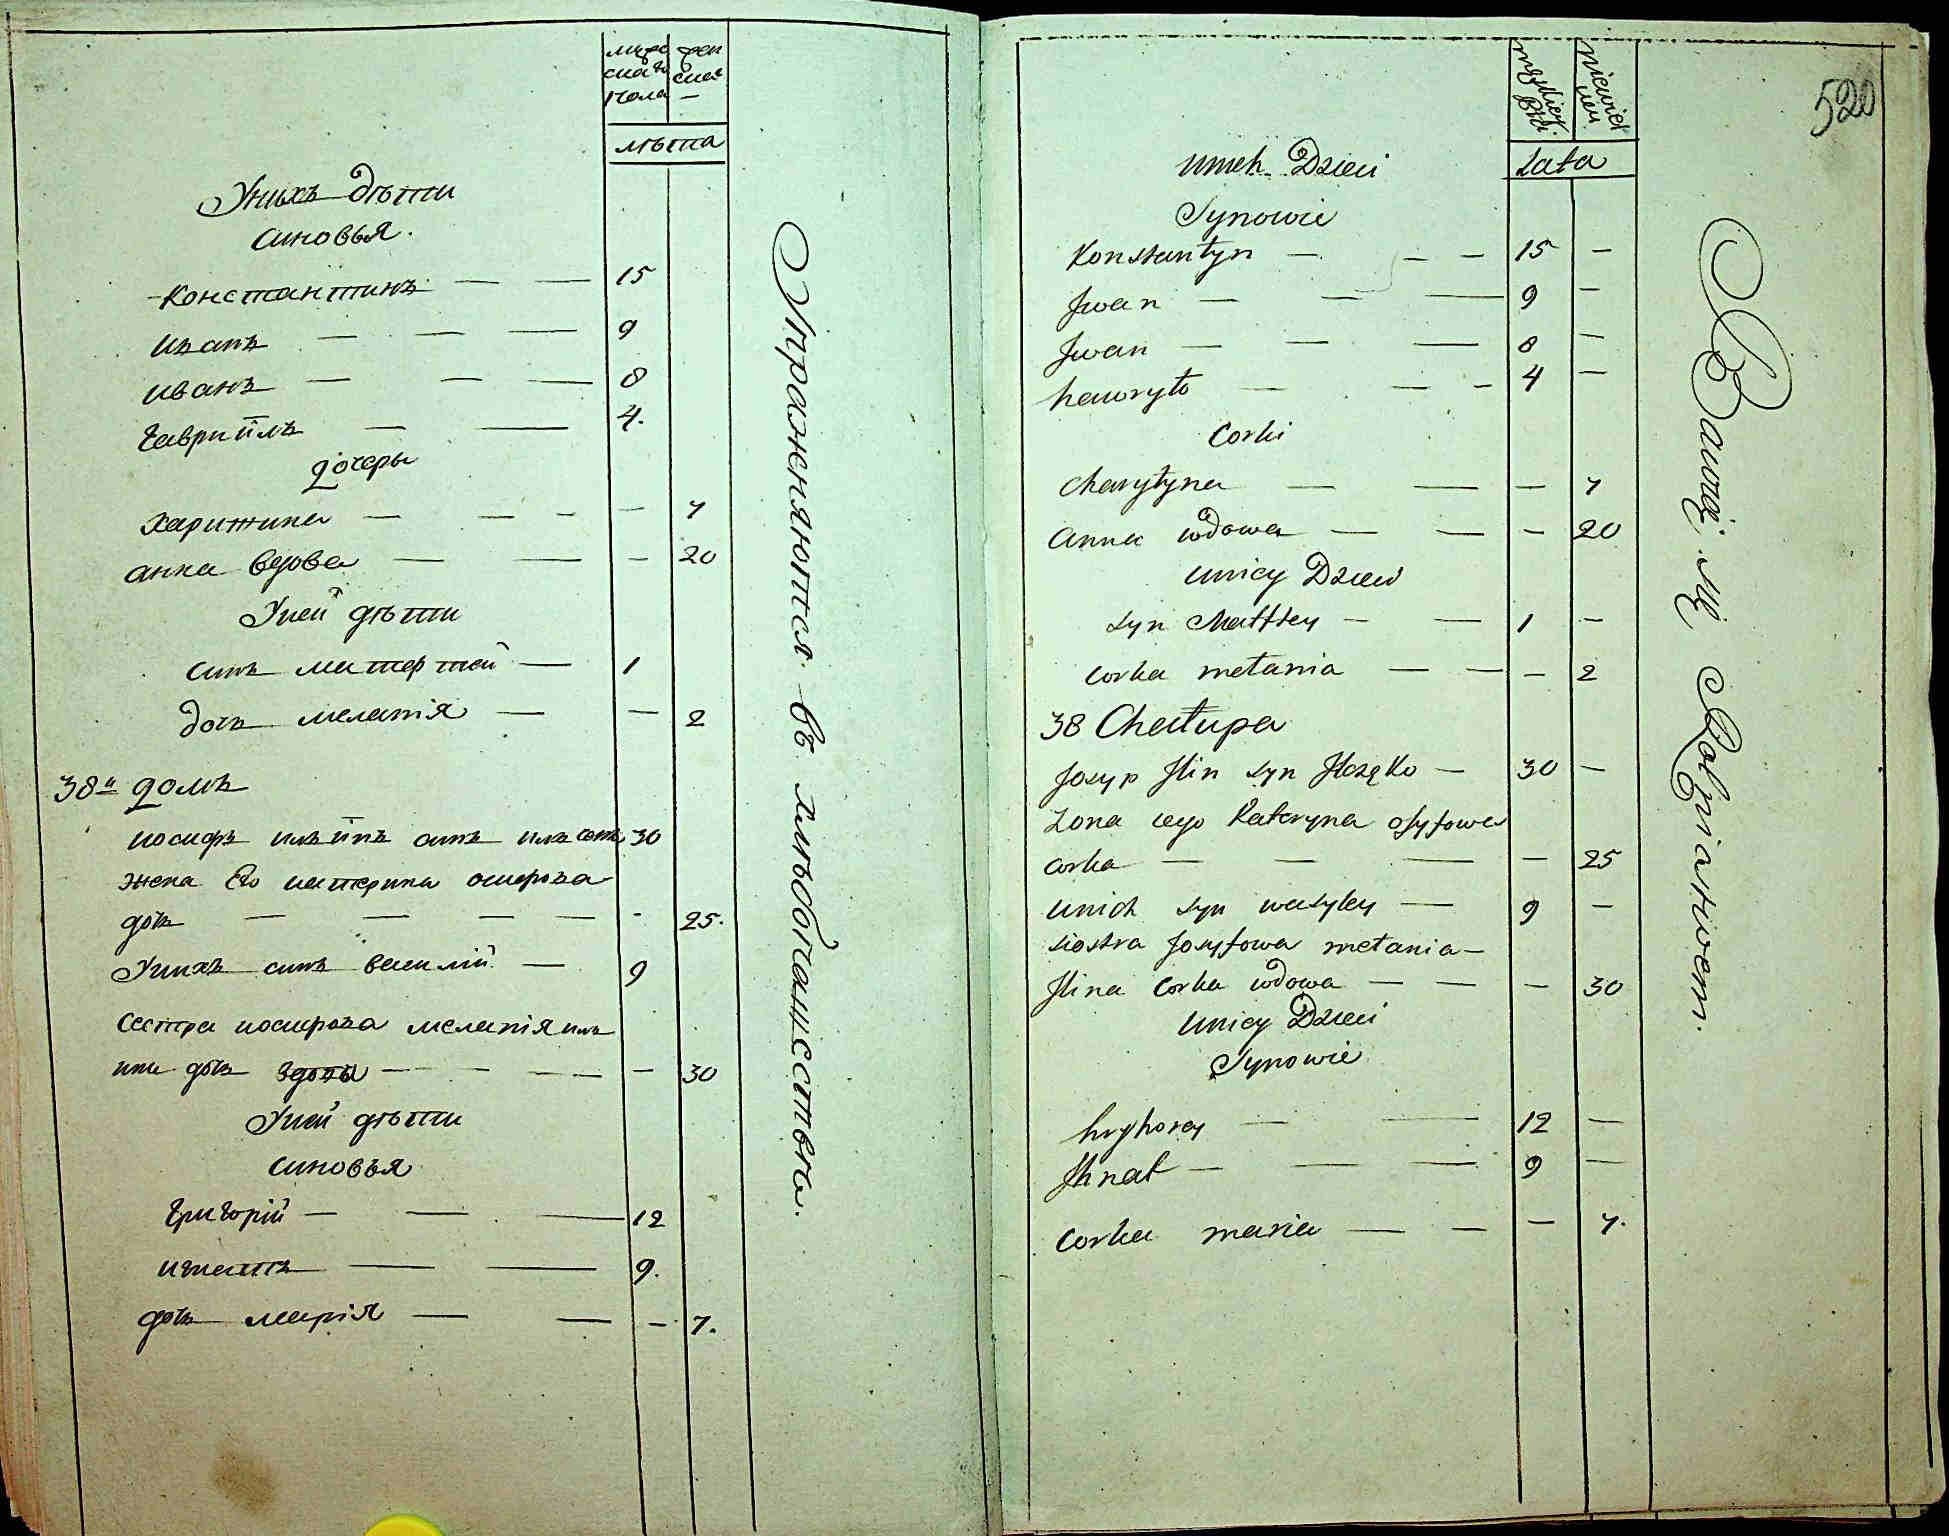 мужс
скаго
пола
жен
скаг
—
лѣта
Унихъ дѣти
синовья.
Константинъ — — 15
иванъ — — — 9
иванъ — — — 8
гавриилъ — — 4.
дочеры
харитина — — - — 7
анна вдова — — — 20
Уней дѣти
синъ матфтей — 1
дочъ меланія — — 2
38й домъ
иосифъ ильинъ синъ 30
жена Его катерина осифова
дочъ — — — — - 25.
Унихъ синъ василій — 9
Сестра иосифова меланія иль
ина дочъ вдова — — — — 30
Уней дѣти
синовья
григорій — — — 12
игнатъ — — 9.
дочъ марія — — — 7.
Упражняются въ хлѣбопашествѣ.
520
męskiey
płci
niewieś
ciey
Lata
Unich Dzieci
Synowie
Konstantyn — — — 15 —
Jwan — — — 9 —
Jwan — — — 8 —
hawryło — — - 4 —
Corki
Charytyna — — — 7
Anna wdowa — — — 20
Unicy Dzieci
Syn Matftey — — 1 —
Corka mełania — — — 2
38 Chałupa
Josyp Jlin syn — 30 —
Zona iego Kateryna osyfowa
corka — — — — 25
Unich syn wasyley — 9 —
siostra Josyfowa mełania —
Jlina Corka wdowa — — — 30
Unicy Dzieci
Synowie
hryhorey — — 12 —
Jhnat — — — 9 —
Corka maria — — — 7.
Bawią się Rolnictwem.